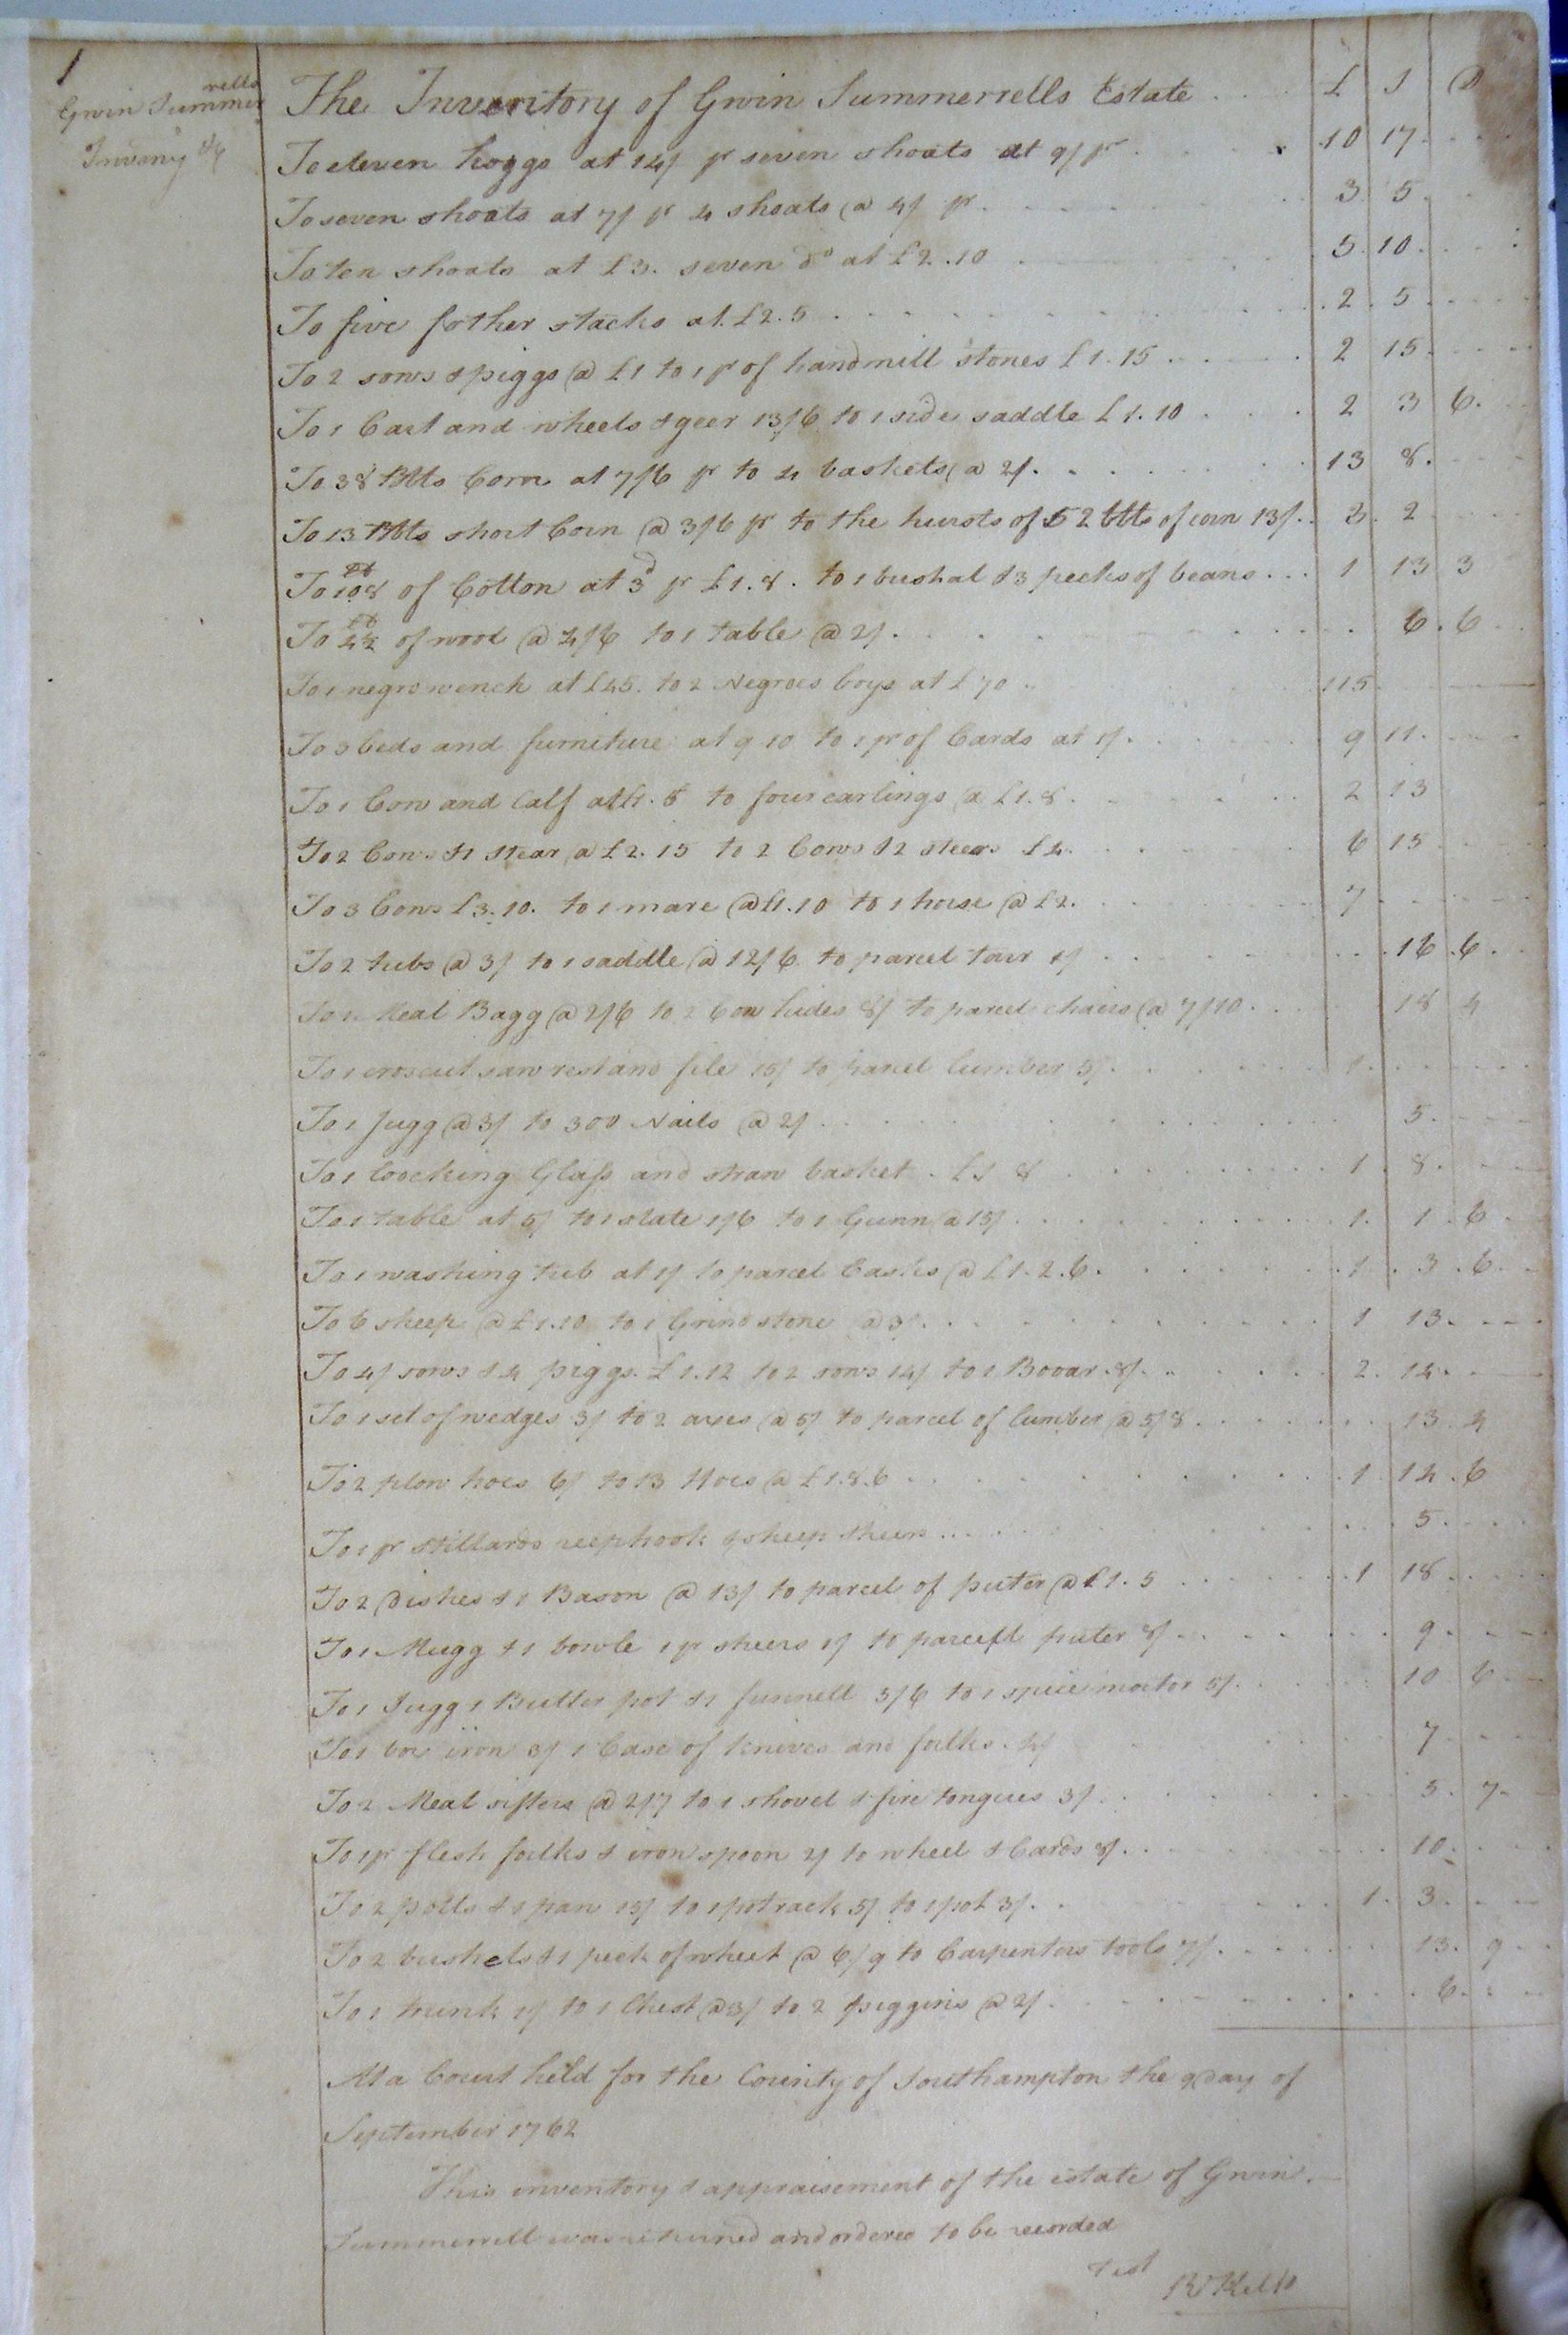 1
Gwin Summerrells
Invany &c
The Inventory of Gwin Summerrells Estate £ S D
To eleven hoggs at 14/ pr seven shoats at 9/ pr 10 17
To seven shoats at 7/ pr 4 shoats @ 4/ pr 3 5
To ten shoats at £3. seven do at £2.10 5 10
To five fother stacks at £2.5 2 5
To 2 sows & piggs @ £1 to 1 pr of handmill stones £1.15 2 15
To 1 Cart and wheels & geer 13/6 to 1 side saddle £1.10 2 3 6
To 38 Blls Corn at 7/6 pr to 4 baskets @ 2/ 13 8
To 13 Blls short Corn @ 3/6 pr to the hursts of 52 blls of corn 13/ 3 2
To 108 of Cotton at 3d pr £1.8. to 1 bushal & 3 pecks of beans 1 13 3
To of wool @ 4/6 to 1 table @ 2/ 6 6
To 1 negro wench at £45. to 2 Negroes boys at £70 115
To 3 beds and furniture at 9 10 to 1 pr of Cards at 1/ 9 11
To 1 Cow and Calf at £1.5 to four earlings @ £1.8 2 13
To 2 Cows & 1 stear @ £2.15 to 2 Cows & 2 steers £4 6 15
To 3 Cows £3.10. to 1 mare @ £1.10 to 1 horse @ £2. 7
To 2 tubs @ 3/ to 1 saddle @ 12/6 to parcel tarr 1/ 16 6
To 1 Meal Bagg @ 2/6 to 2 Cow hides 8/ to parcel chairs @ 7/10 18 4
To 1 croscut saw rest and file 15/ to parcel lumber 5/ 1
To 1 Jugg @ 3/ to 300 Nails @ 2/ 5
To 1 Loocking Glass and straw basket £1 8 1 8
To 1 table at 5/ to 1 slate 1/6 to 1 Gunn @ 15/ 1 1 6
To 1 washing tub at 1/ to parcel Casks @ £1.2.6 1 3 6
To 6 sheep @ £1.10 to 1 Grindstone @ 3/ 1 13
To 4/ sows & 4 piggs £1.12 to 2 sows 14/ to 1 Booar 8/ 2 14
To 1 set of wedges 3/ to 2 axes @ 5/ to parcel of lumber @ 5/8 13 4
To 2 plow hoes 6/ to 13 Hoes @ £1.8.6 1 14 6
To 1 pr stillards reephook & sheep sheers 5
To 2 Dishes & 1 Bason @ 13/ to parcel of puter @ £1.5 1 18
To 1 Mugg & 1 bowle 1 pr sheers 1/ to parcell puter 8/ 9
To 1 Jugg 1 Butter pot & 1 funnell 5/6 to 1 spice mortor 5/ 10 6
To 1 box iron 3/ 1 Case of knives and falks 4/ 7
To 2 Meal sifters @ 2/7 to 1 shovel & fire tongues 3/ 5 7
To 1 pr flesh falks & iron spoon 2/ to wheel & Cards 8/ 10
To 2 potts & 1 pan 15/ to 1 potrack 5/ to 1 pot 3/ 1 3
To 2 bushels & 1 peck of wheet @ 6/9 to Carpenters tools 7/ 13 9
To 1 trunk 1/ to 1 Chest @ 3/ to 2 piggins @ 2/ 6
At a Court held for the County of Southampton the 9 Day of
September 1762
This inventory & appraisement of the estate of Gwin
Summerrell was returned and ordered to be recorded
Test
R Kello